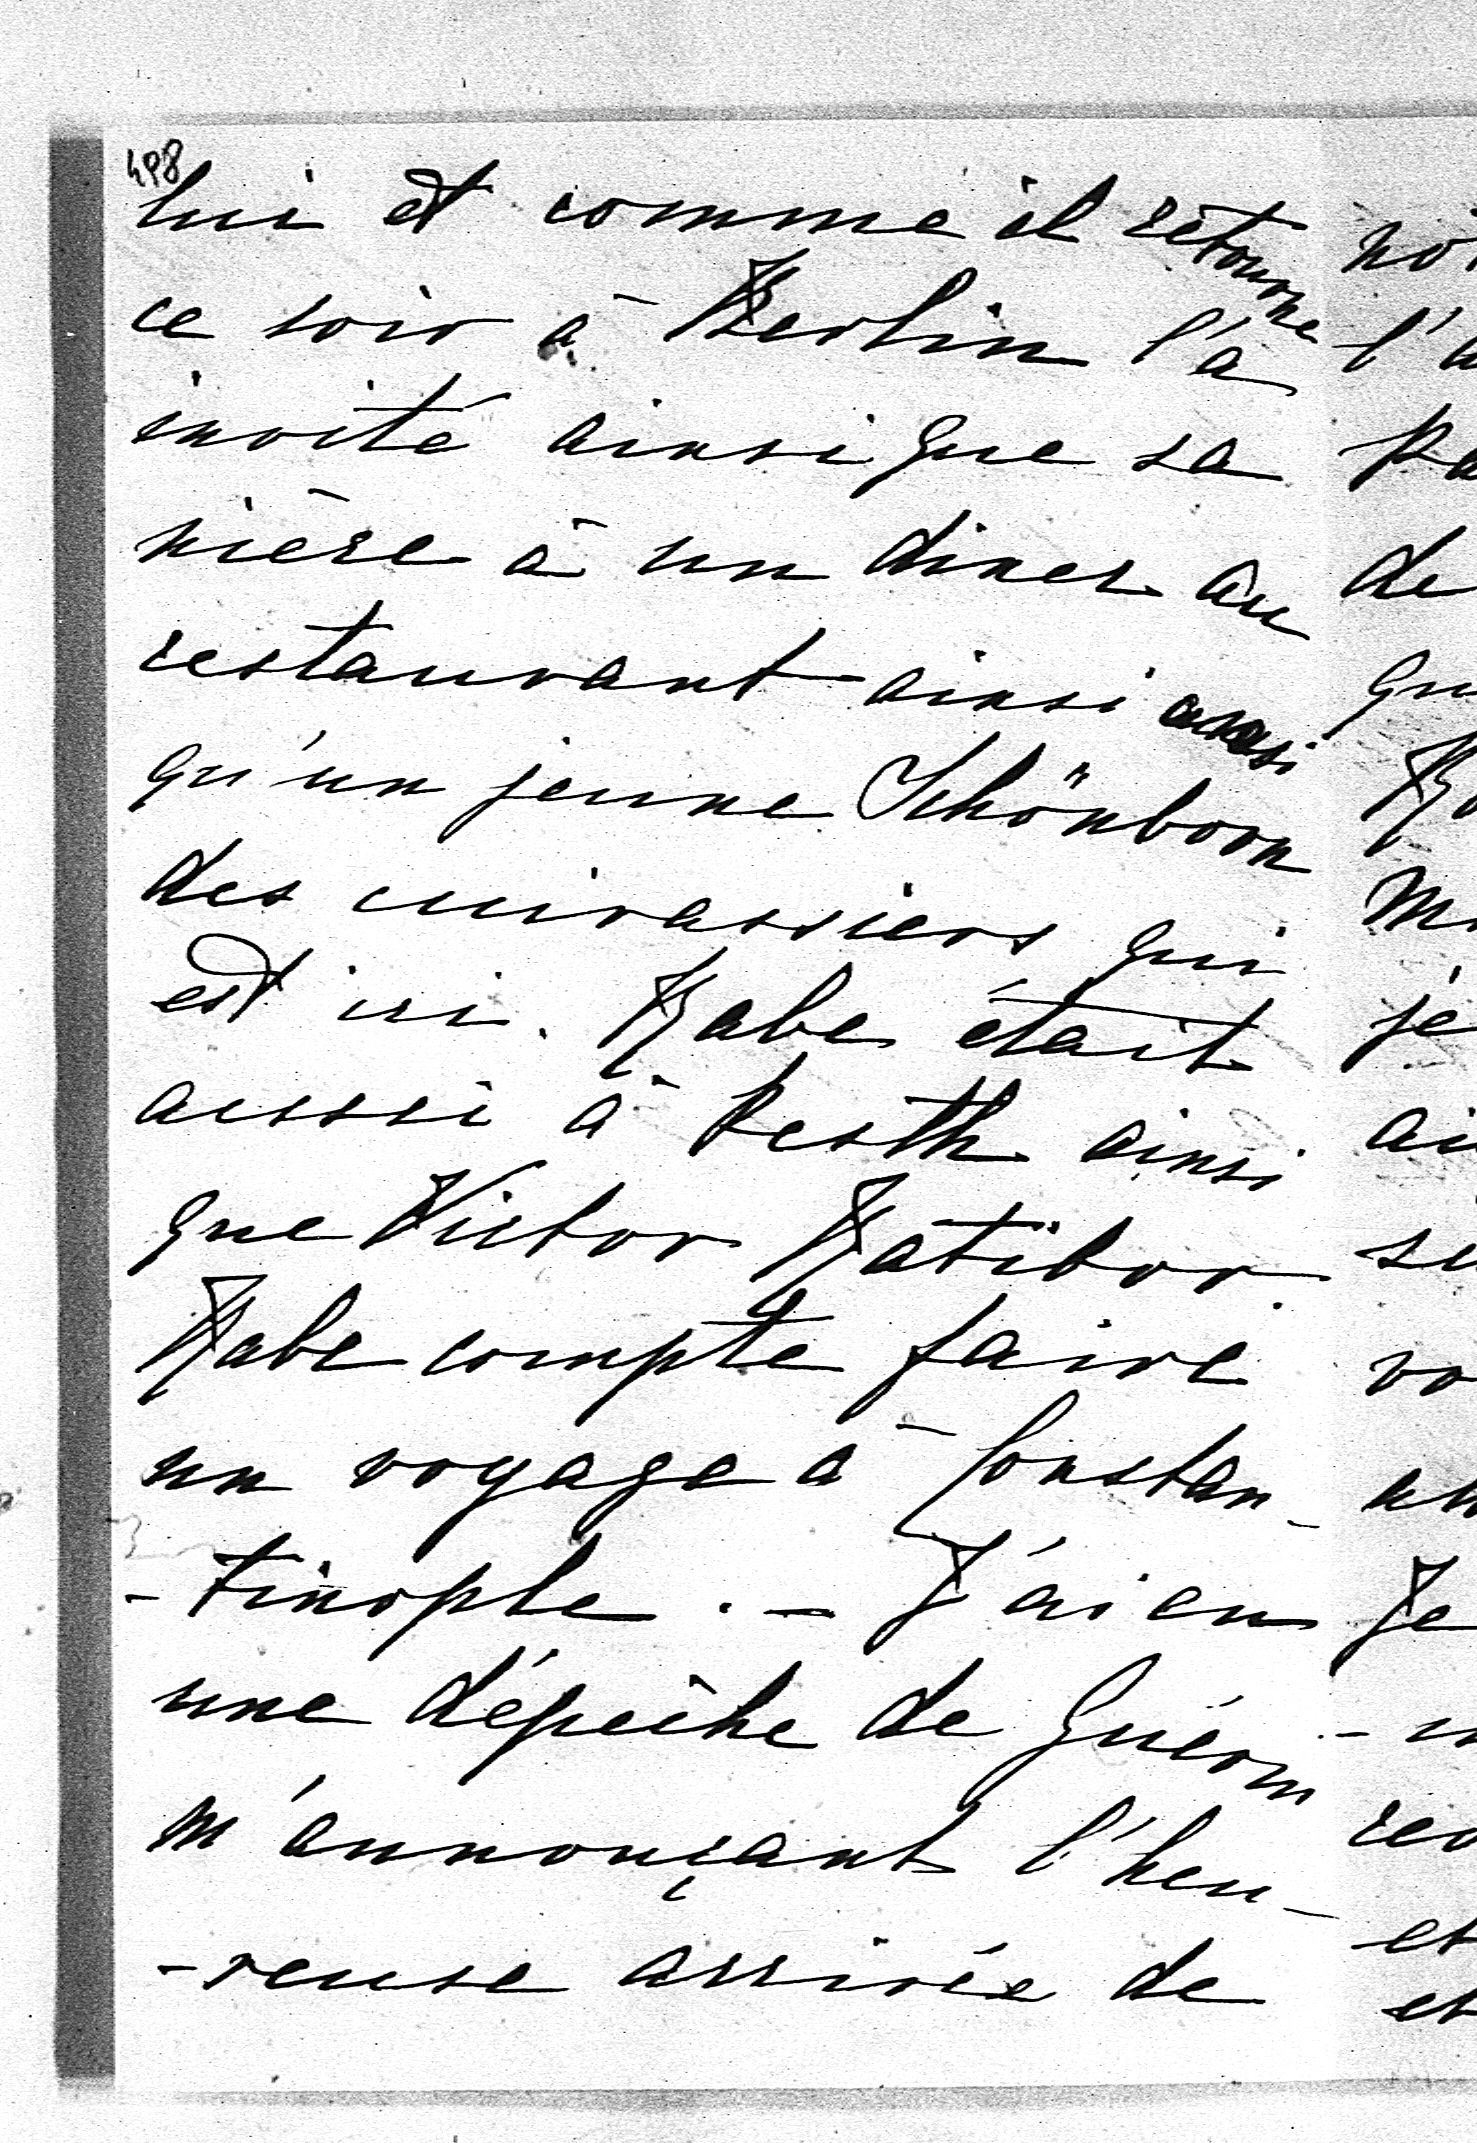 498
lui et comme il retourne
ce soir à Berlin l'a
invité ainsi que sa
nièce à un diner au
restaurant ainsi aussi
qu'un jeune Schönborn
des cuirassiers qui
est ici. Rabe était
aussi à Pesth ainsi
que Victor Ratibor.
Rabe compte faire
un voyage à Constan-
-tinople. - J'ai eu
une dépêche de Guérin
m'annonçant l'heu-
-reuse arrivée de